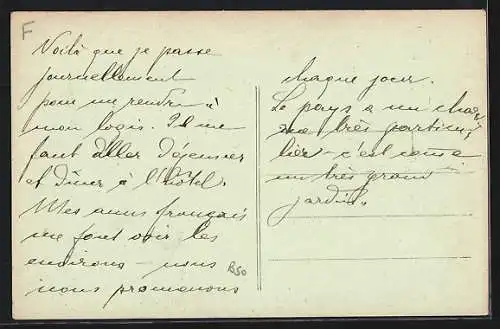 F
Voilà que je passe
journellement
pour me rendre à
mon logis. Il me
faut aller déjeuner
et dîner à l'hôtel.
Mes amis français
me font voir les
environs – nous
nous promenons
B50
chaque jour.
Le pays a un char-
me très particu-
lier – c'est comme
un très grand
jardin.